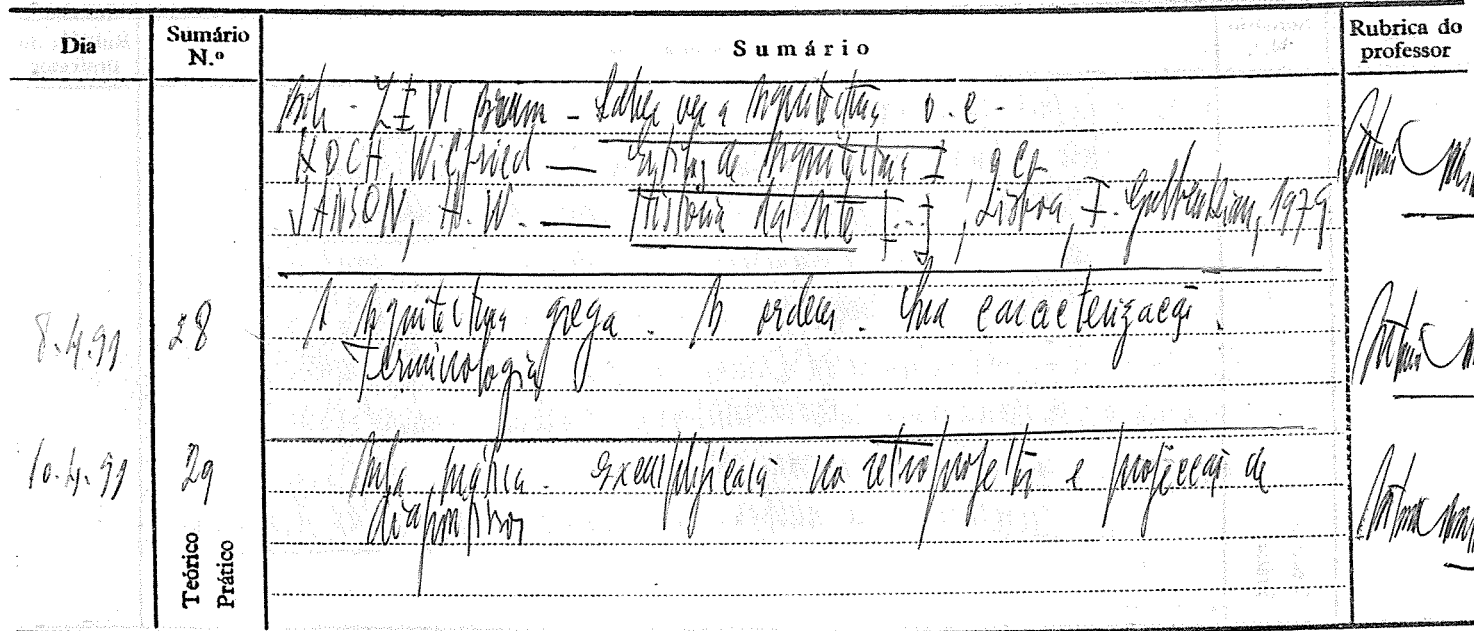 Dia
Sumário N.º
Sumário
Rubrica do professor
Bib - ZEVI Bruno - Saber ver a Arquitectura o. c -
KOCH, Wilfried — Estilos de Arquitectura I,
JANSON, H. W. — História da Arte [...], Lisboa, F. Gulbenkian, 1979
8.4.91 28 A Arquitectura grega. A ordem. Sua caracterização.
Terminologia
10.4.91 29 Aula prática. Exemplificação no retroprojetor e projecção de
diapositivos
Teórico
Prático